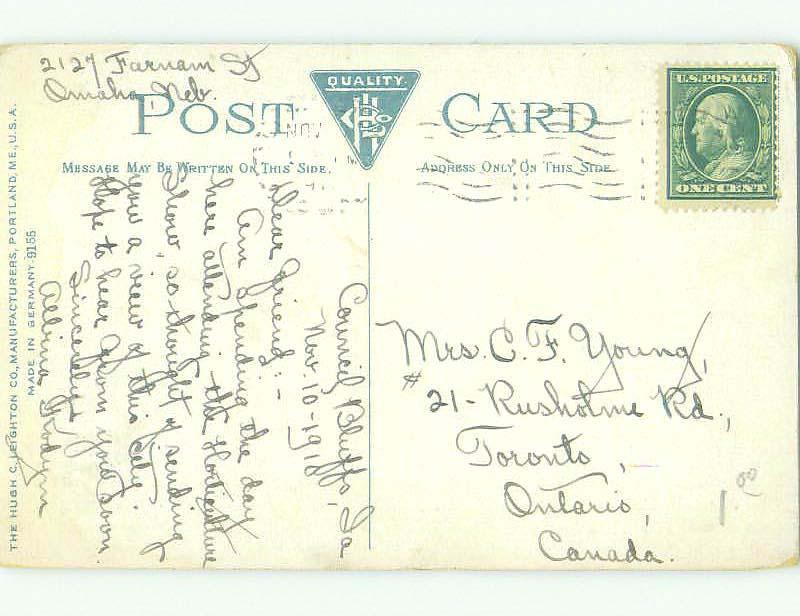 2127 Farnam St
Omaha Neb.
POST CARD
QUALITY.
U.S. POSTAGE
ONE CENT
NOV
MESSAGE MAY BE WRITTEN ON THIS SIDE.
ADDRESS ONLY ON THIS SIDE.
Council Bluffs, Ia
Nov. 10-1910
Dear Friend:-
Am spending the day
here attending the Horticulture
Show, so thought of sending
you a view of this City.
Hope to hear from you soon.
Sincerely,
Albina
Mrs. C. F. Young,
# 21- Rusholme Rd.,
Toronto,
Ontario,
Canada.
1.00
THE HUGH C. LEIGHTON CO., MANUFACTURERS, PORTLAND, ME., U.S.A.
MADE IN GERMANY 9155